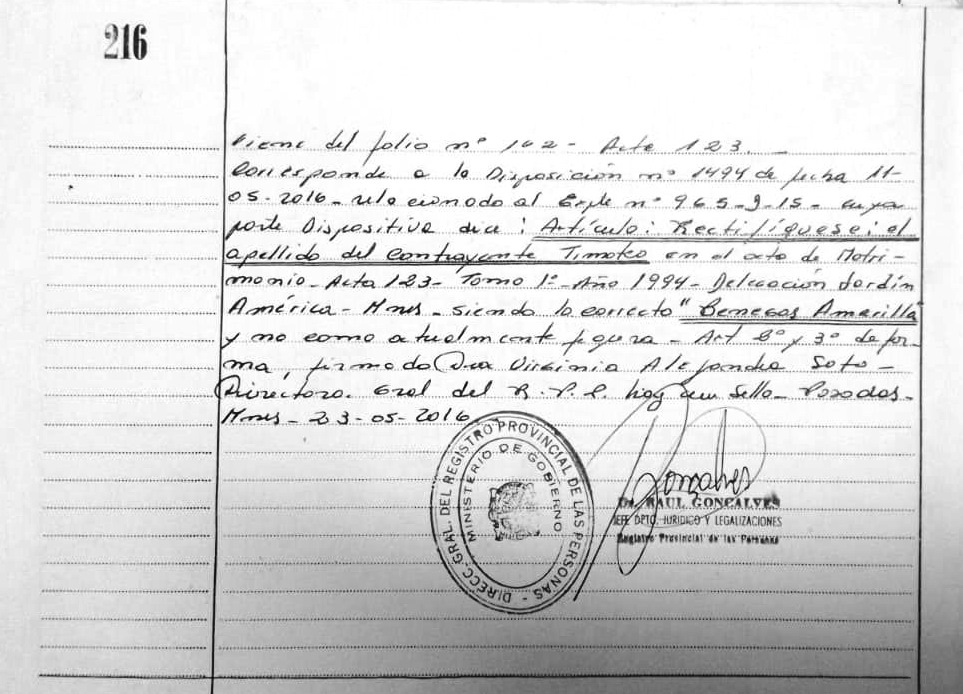 216
Viene del folio nº 142 - Acta 123. -
Corresponde a la Disposición nº 1494 de fecha 11-
05-2016 - relacionado al Expte nº 965-9-15 - cuya
parte Dispositiva dice: Artículo: Rectifíquese; el
apellido del contrayente Timoteo en el acto de Matri-
monio - Acta 123 - Tomo 1º - Año 1994 - Delegación Jardín
América - Mnes - siendo lo correcto "Benegas Amarilla
y no como actualmente figura - Art 2º y 3º de for-
ma, firmado Dra Virginia Alejandra Soto -
Directora. Gral del R.P.P. hay un Sello - Posadas -
Mnes - 23-05-2016
DIRECC. GRAL. DEL REGISTRO PROVINCIAL DE LAS PERSONAS -
MINISTERIO DE GOBIERNO
Gonçalves
Dr. RAUL GONCALVES
JEFE DPTO. JURIDICO Y LEGALIZACIONES
Registro Provincial de las Personas